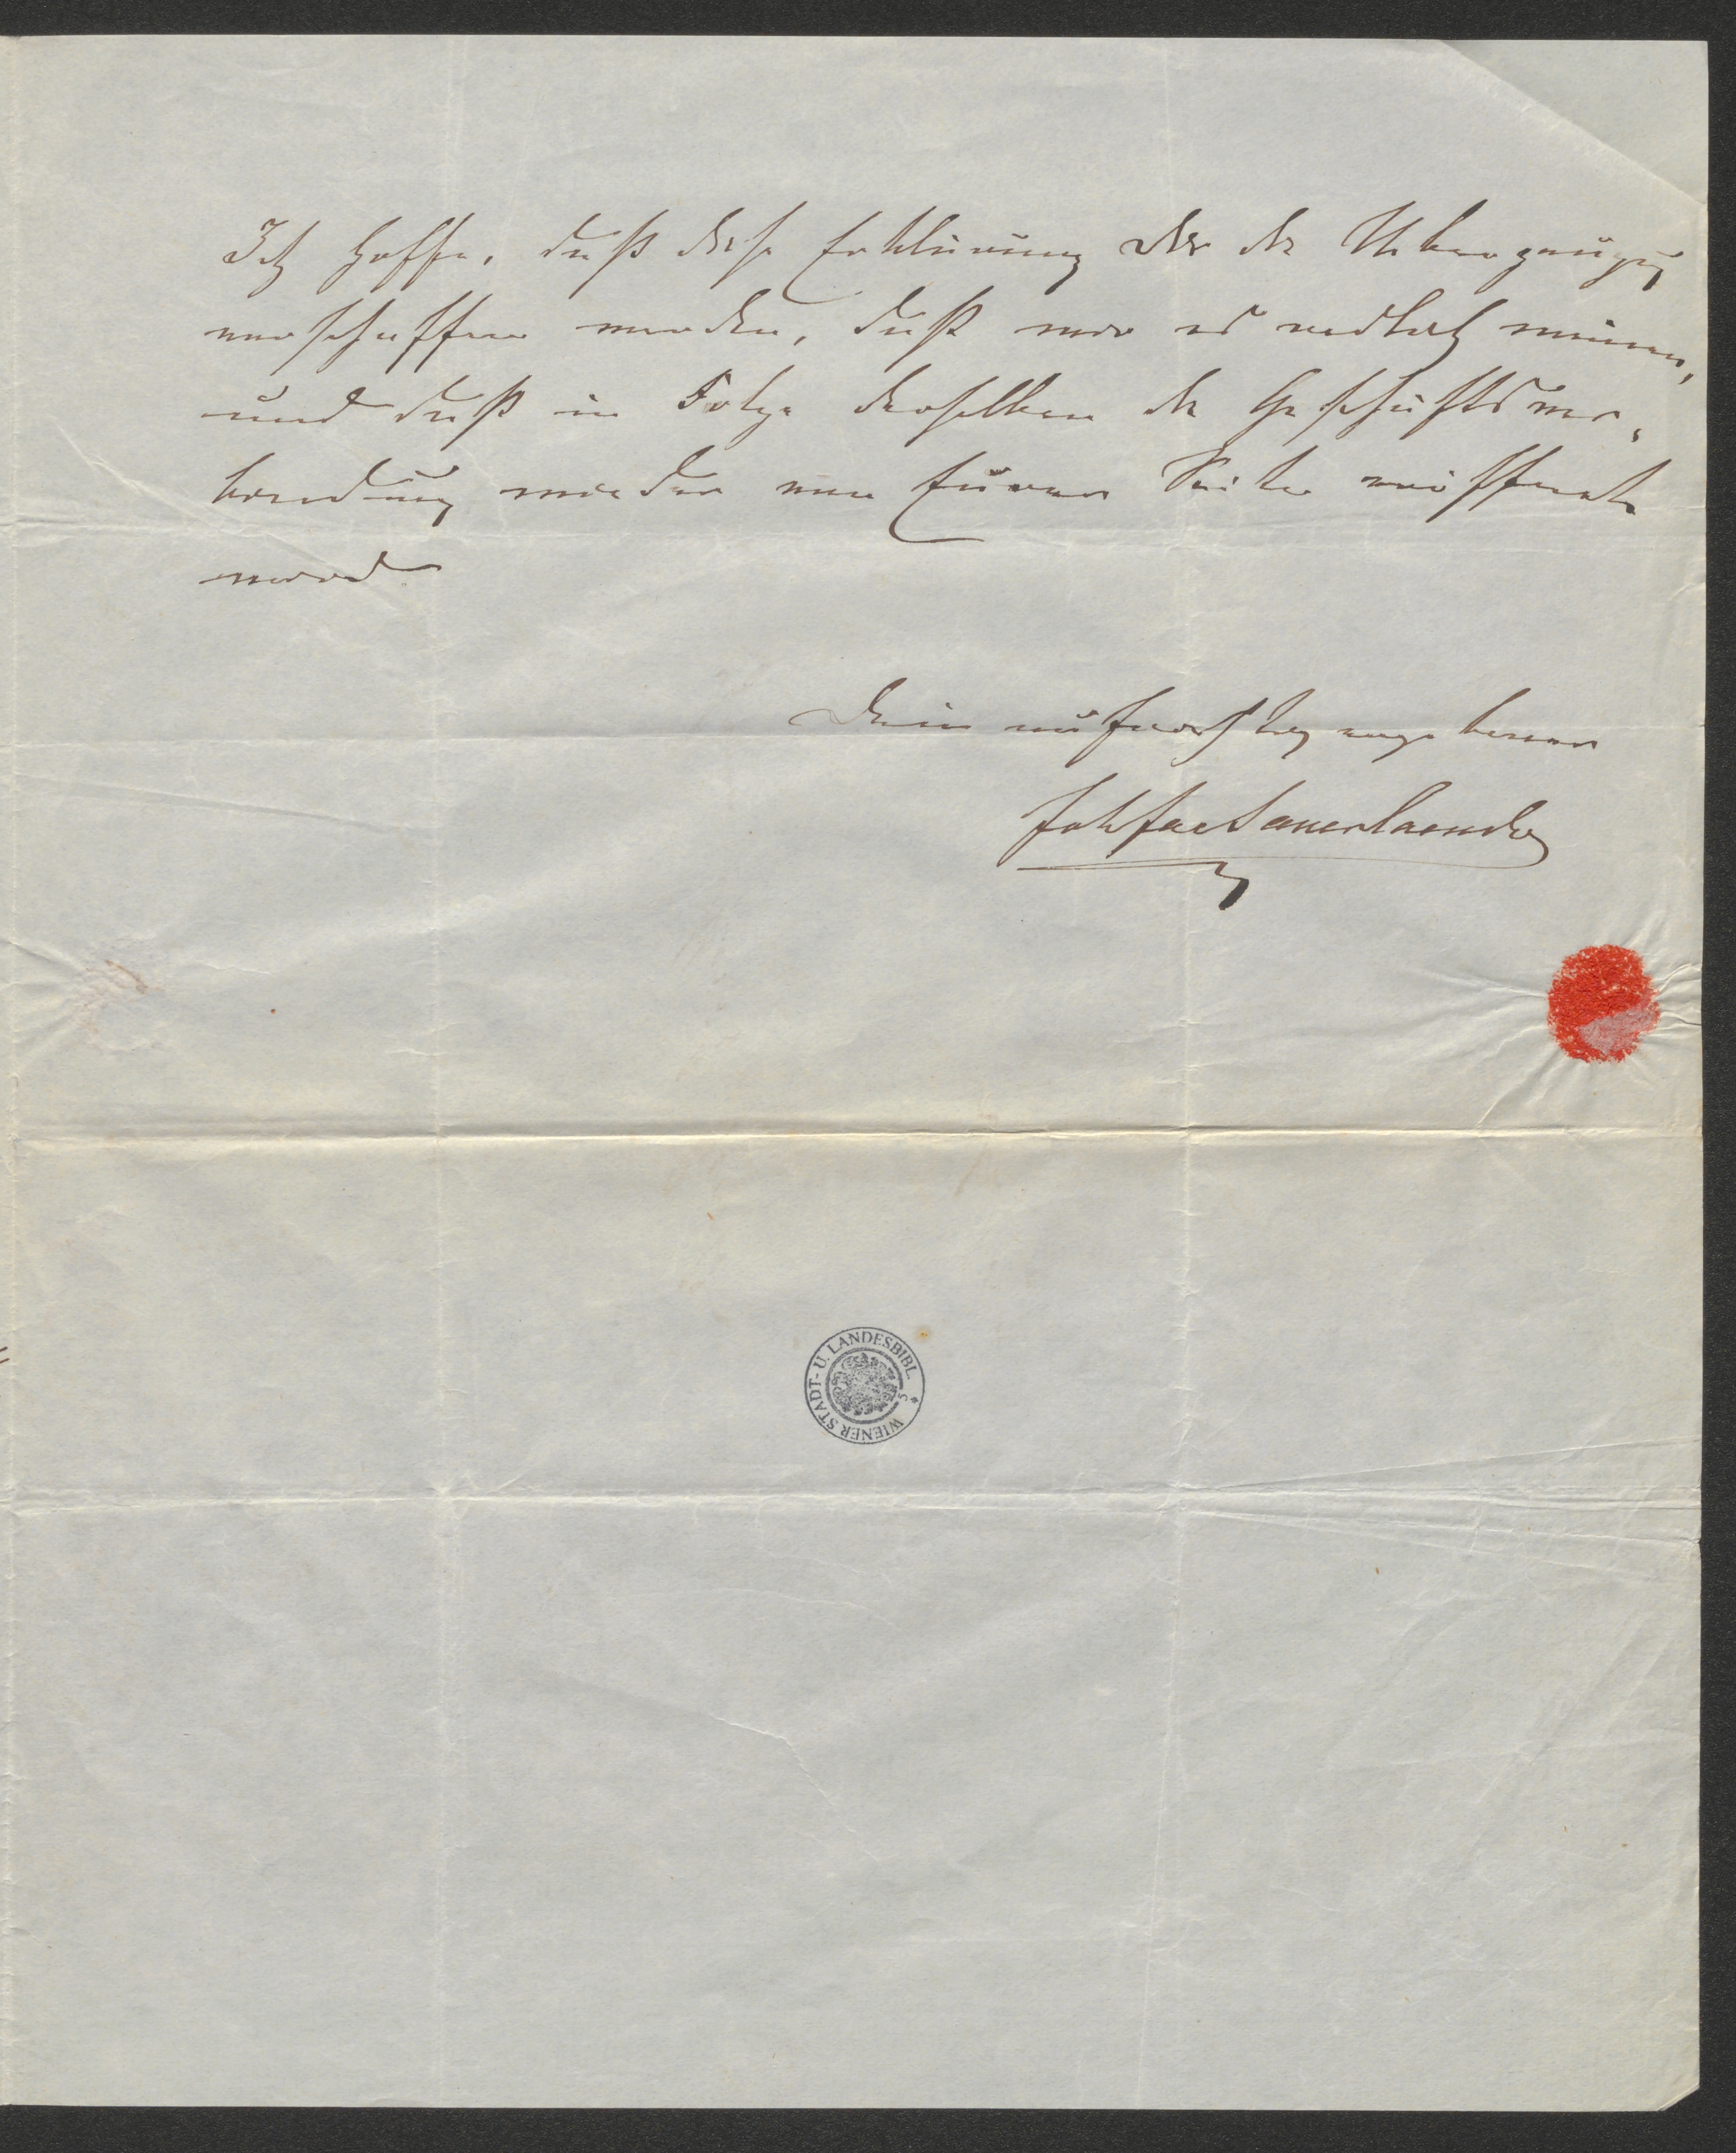 Ich hoffe, daß diese Erklärung Dir die Ueberzeugung
verschaffen werden, daß wir es redlich meinen,
und daß in Folge derselben die Geschäftsver-
bindung wieder von Eurer Seite eröffnet
wird
Dein aufrichtig ergebener
Joh Jac Sauerlaender
WIENER STADT- U. LANDESBIBL.